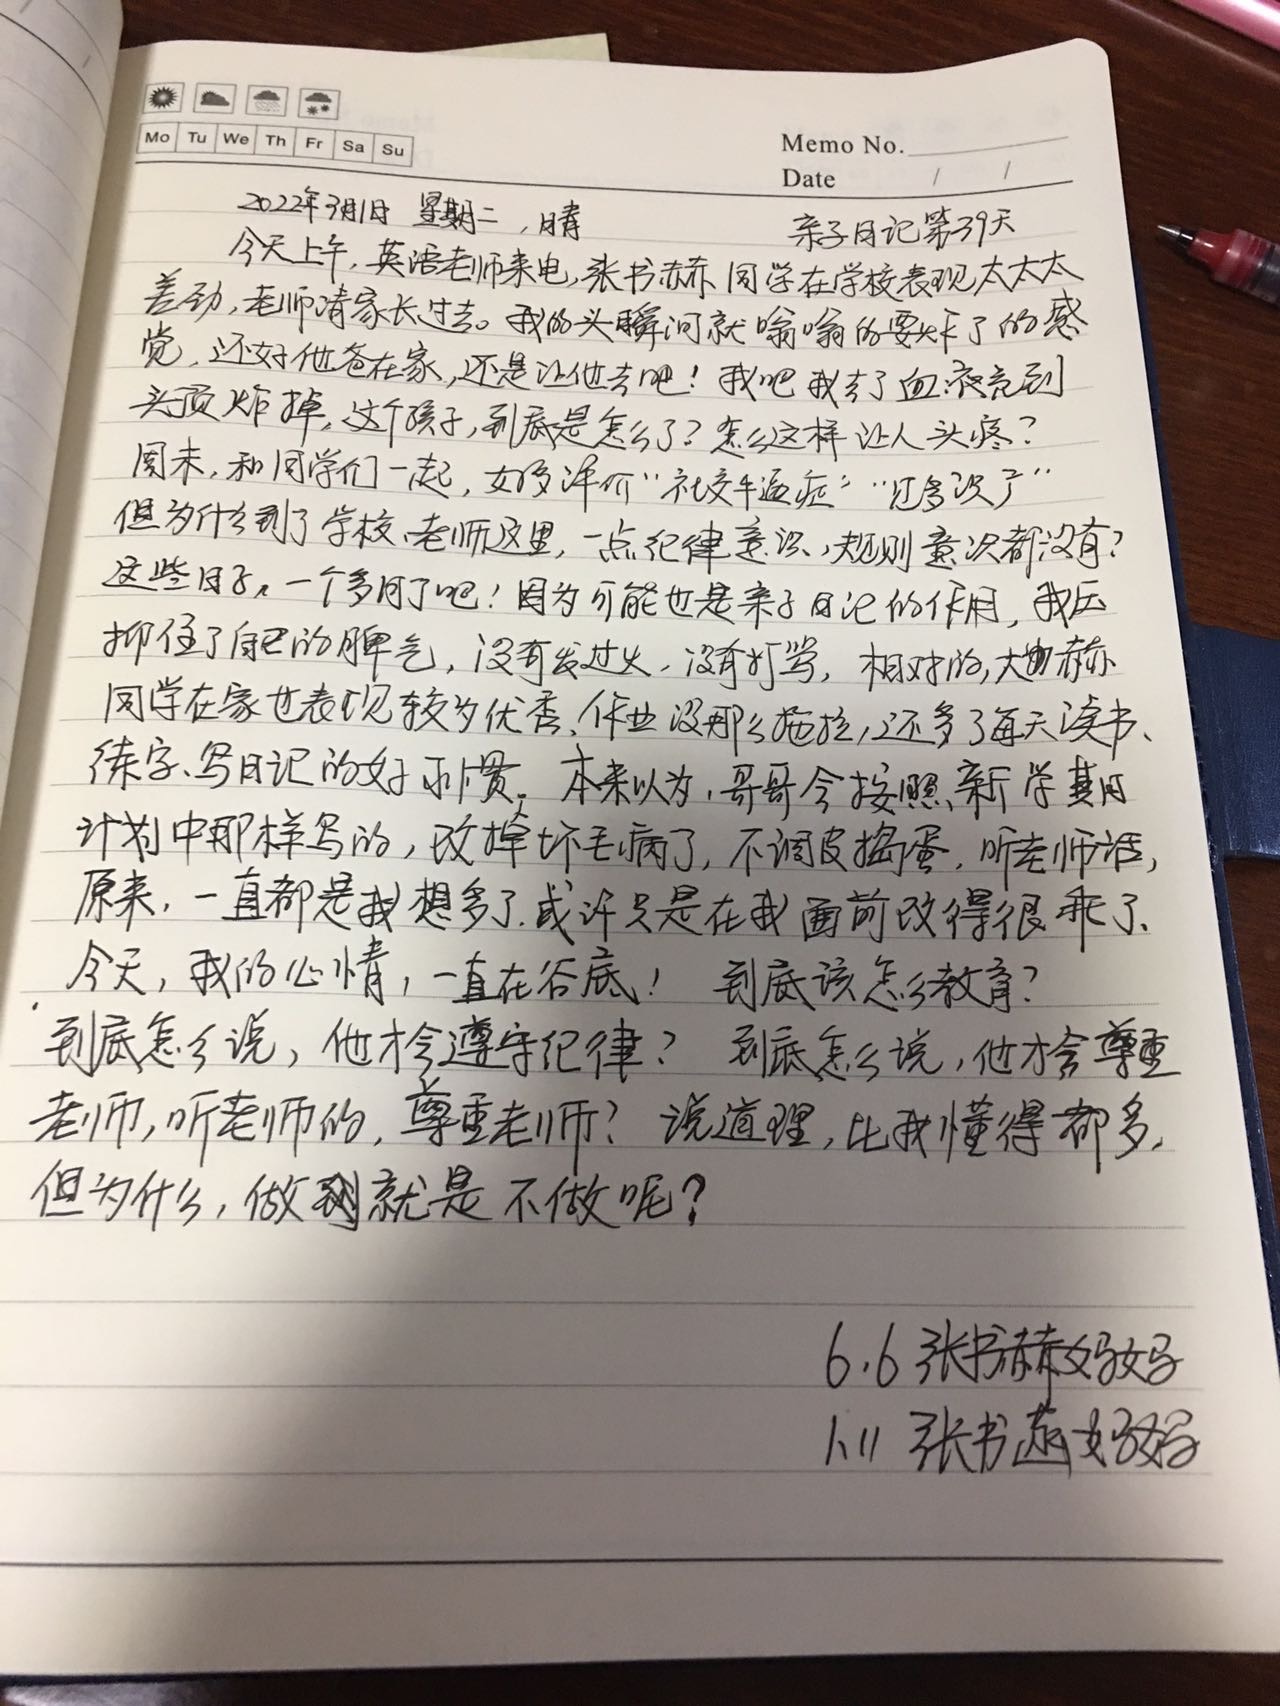 Mo Tu We Th Fr Sa Su
Memo No.
Date / /
2022年3月1日 星期二,晴
亲子日记第39天
今天上午,英语老师来电,张书赫同学在学校表现太太太
差劲,老师请家长过去。我的头瞬间就嗡嗡的要炸了的感
觉,还好他爸在家,还是让他去吧!我吧我去了血液充到
头顶炸掉,这个孩子,到底是怎么了?怎么这样让人头疼?
周末,和同学们一起,好多评价“社交牛逼症”
但为什么到了学校、老师这里,一点纪律意识、规则意识都没有?
这些日子,一个多月了吧!因为可能也是亲子日记的作用,我压
抑住了自己的脾气,没有发过火,没有打骂,相对的,大赫赫
同学在家也表现较为优秀、作业没那么拖拉,还多了每天读书、
练字、写日记的好习惯。本来以为,哥哥会按照新学期
计划中那样写的,改掉坏毛病了,不调皮捣蛋,听老师话,
原来,一直都是我想多了.或许只是在我面前改得很乖了、
今天,我的心情,一直在谷底!到底该怎么教育?
到底怎么说,他才会遵守纪律?到底怎么说,他才会尊重
老师,听老师的,尊重老师?说道理,比我懂得都多,
但为什么,做到就是不做呢?
6.6 张书赫妈妈
1.11 张书菡妈妈